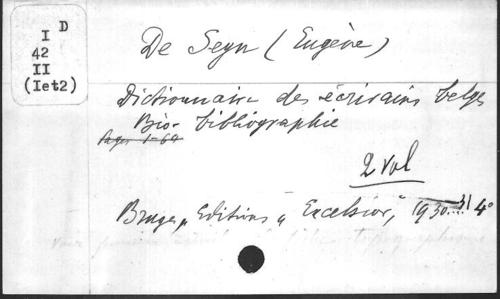 I D
42
II
(Iet2)
De Seyn (Eugène)
Dictionnaire des écrivains belges
Bio-bibliographie
Pages 1-64
2 vol
Bruges, Editions "Excelsior", 1930-31 4°